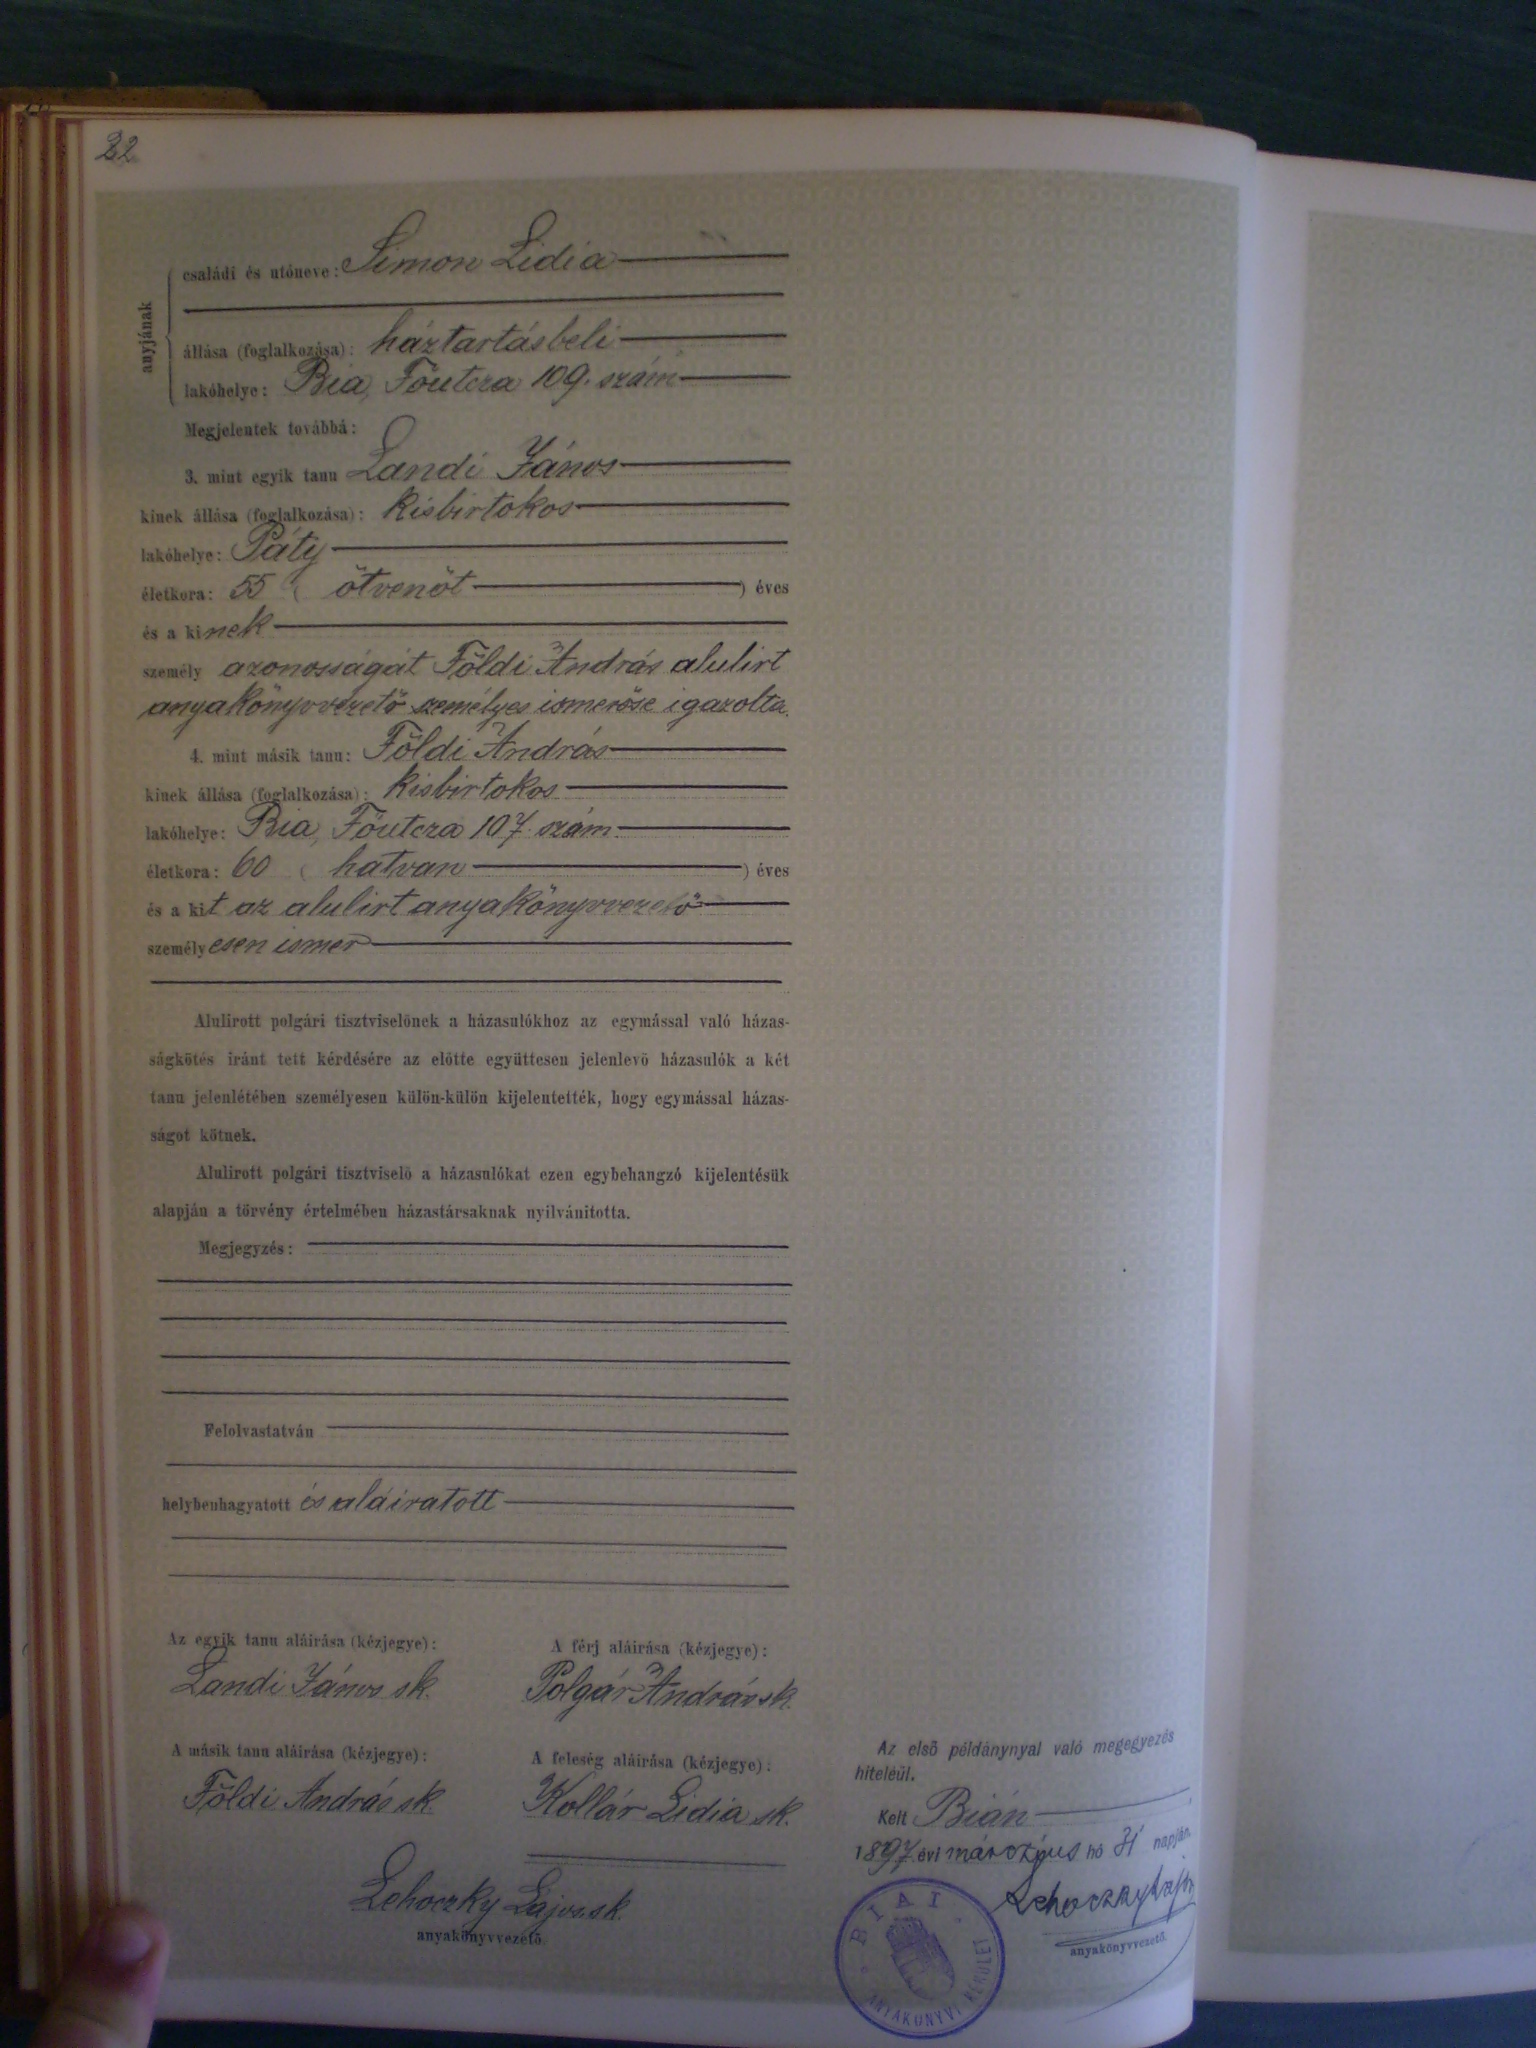 22
anyjának
családi és utóneve: Simon Lidia
állása (foglalkozása): háztartásbeli
lakóhelye: Bia, Főutcza 109. szám
Megjelentek továbbá:
3. mint egyik tanu Landi János
kinek állása (foglalkozása): kisbirtokos
lakóhelye: Páty
életkora: 55 ( ötvenöt ) éves
és a kinek
személy azonosságát Földi András alulirt
anyakönyvvezető személyes ismerőse igazolta.
4. mint másik tanu: Földi András
kinek állása (foglalkozása): kisbirtokos
lakóhelye: Bia, Főutcza 107. szám
életkora: 60 ( hatvan ) éves
és a kit az alulirt anyakönyvvezető
személyesen ismer
Alulirott polgári tisztviselőnek a házasulókhoz az egymással való házas-
ságkötés iránt tett kérdésére az előtte együttesen jelenlevő házasulók a két
tanu jelenlétében személyesen külön-külön kijelentették, hogy egymással házas-
ságot kötnek.
Alulirott polgári tisztviselő a házasulókat ezen egybehangzó kijelentésük
alapján a törvény értelmében házastársaknak nyilvánitotta.
Megjegyzés:
Felolvastatván
helybenhagyatott és aláiratott
Az egyik tanu aláirása (kézjegye):
Landi János sk.
A férj aláirása (kézjegye):
Polgár András sk.
A másik tanu aláirása (kézjegye):
Földi András sk.
A feleség aláirása (kézjegye):
Kollár Lidia sk.
Lehoczky Lajos sk.
anyakönyvvezető
Az első példánynyal való megegyezés
hiteléül.
Kelt Bián
1897. évi márczius hó 31 napján.
Lehoczky Lajos
anyakönyvvezető.
BIAI
ANYAKÖNYVI KERÜLET